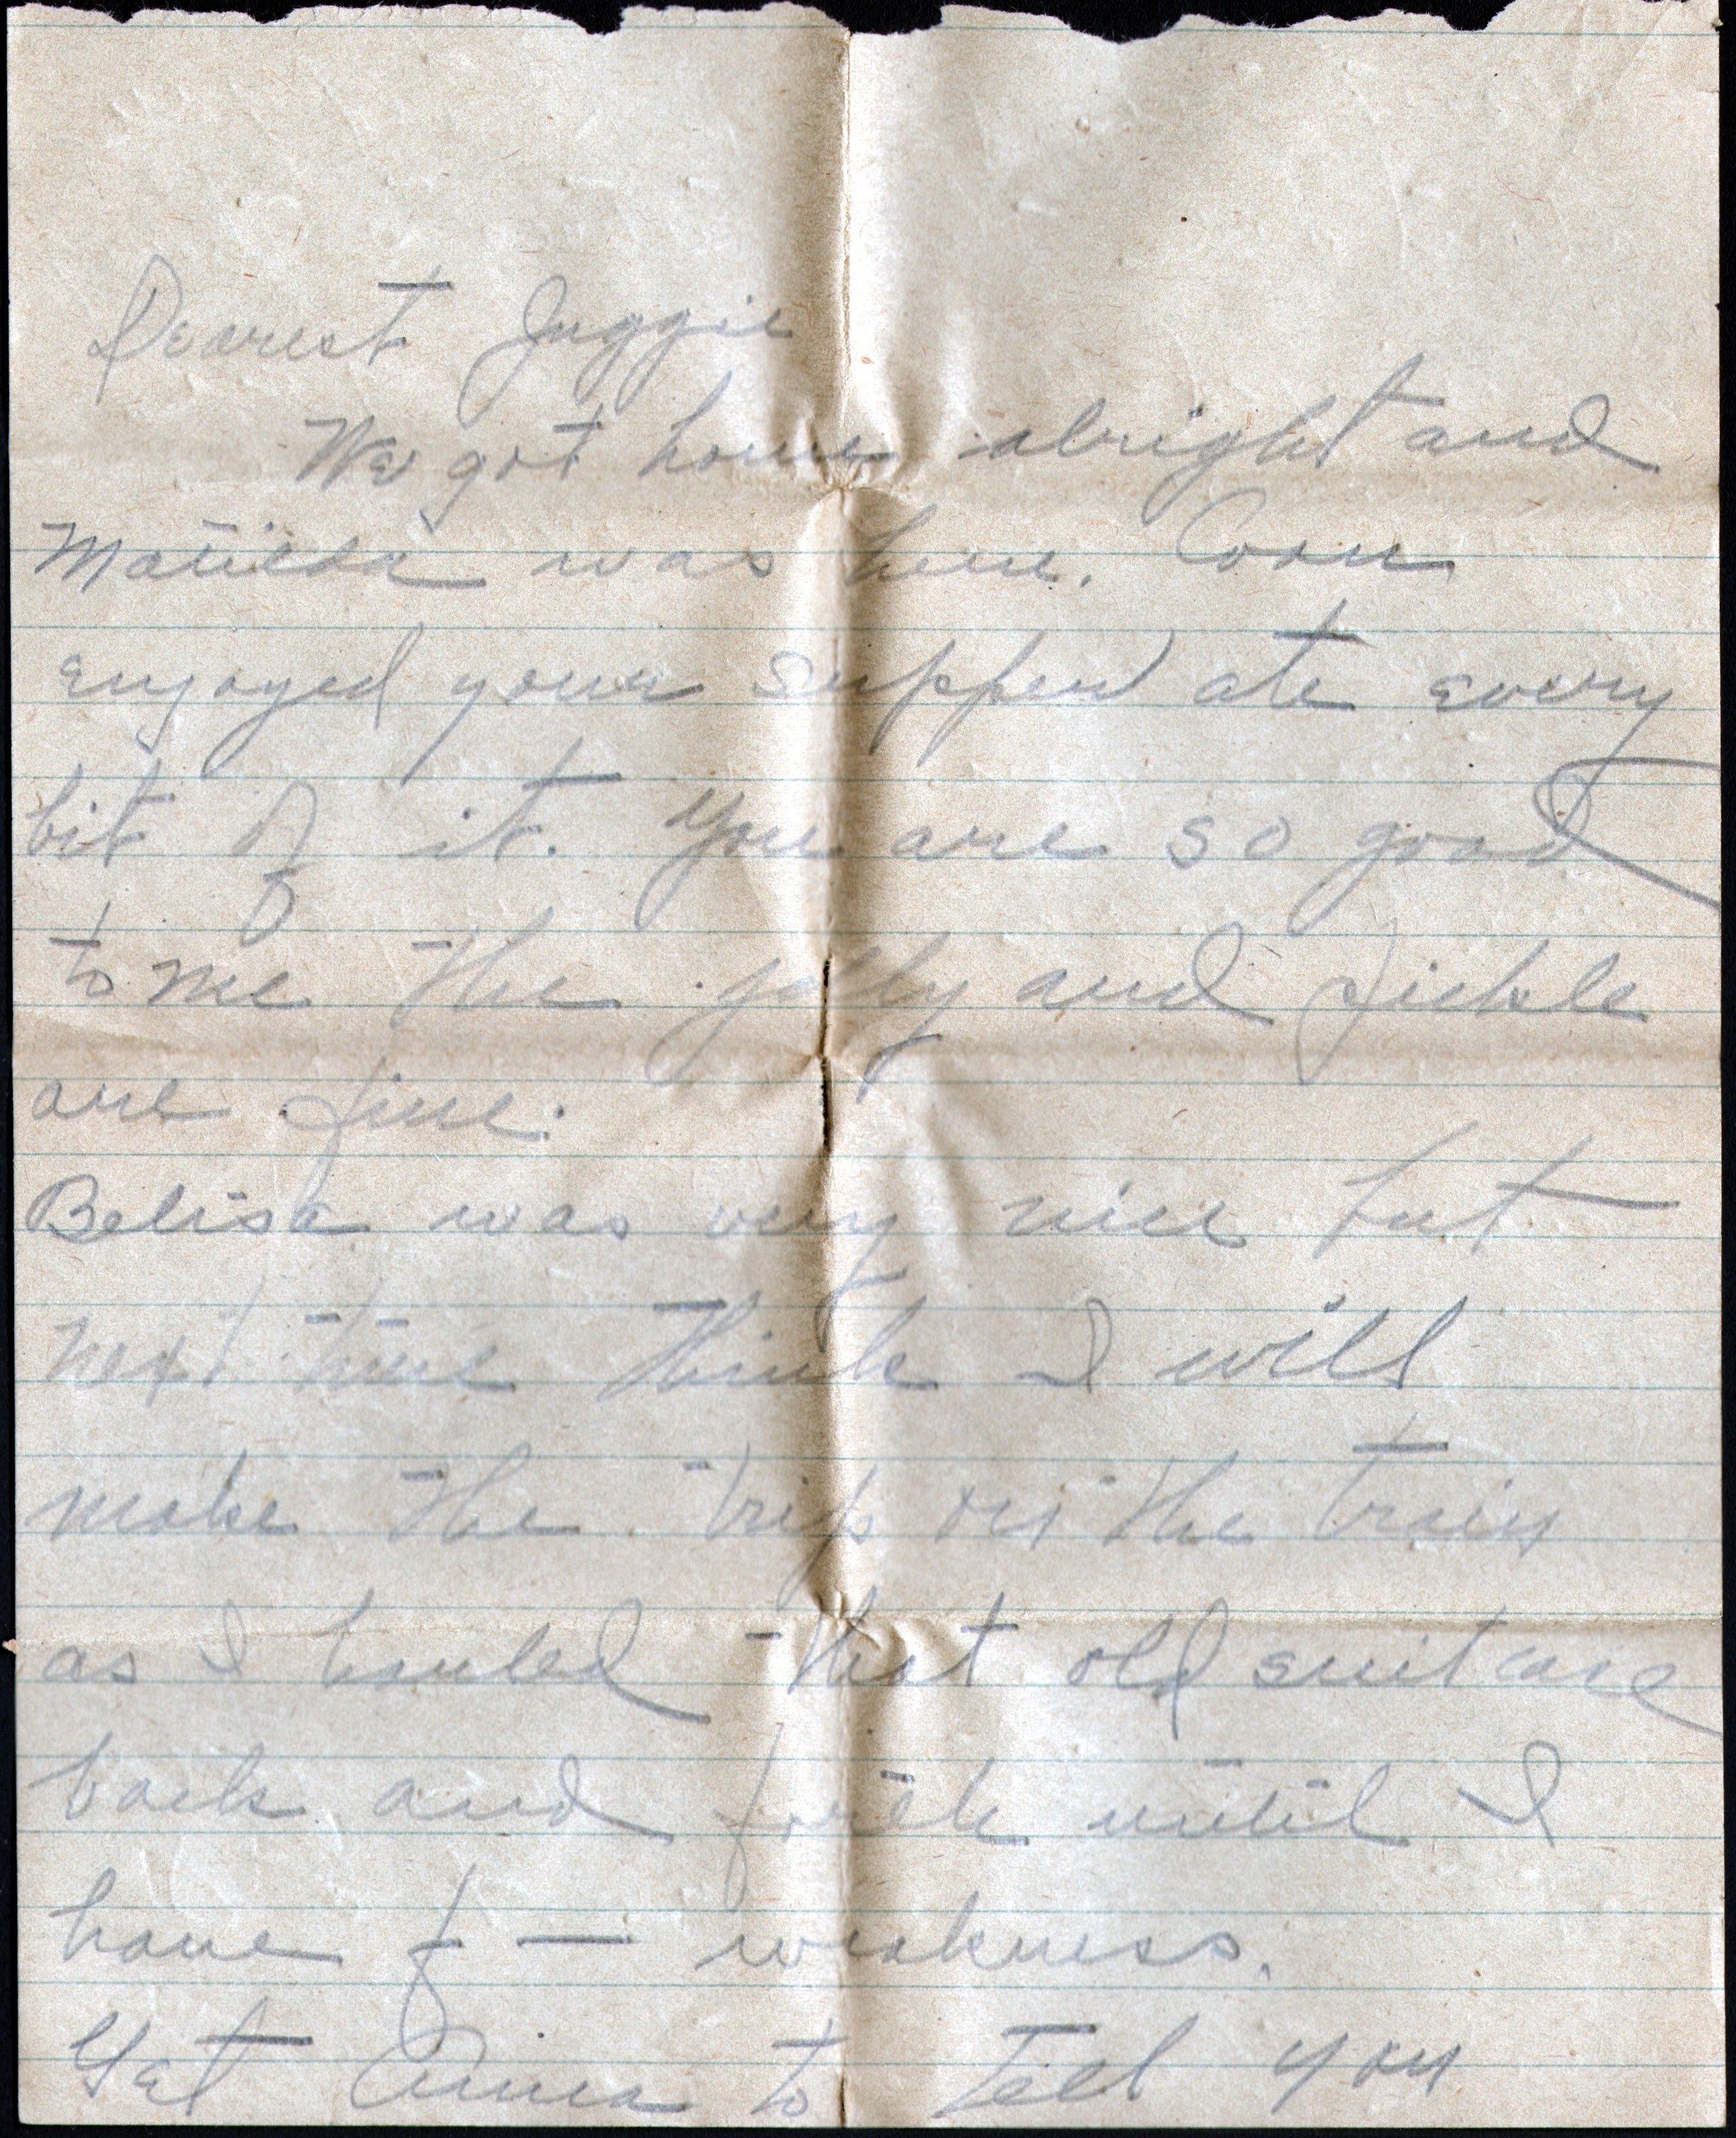 Dearest Juggie
We got home alright and
Matilda was here. Coon
enjoyed your supper ate every
bit of it. You are so good
to me the jelly and pickle
are fine.
Belisa was very nice but
next time think I will
make the trip on the train
as I hauled that old suitcase
back and forth until I
have f — weakness.
Get Anna to tell you